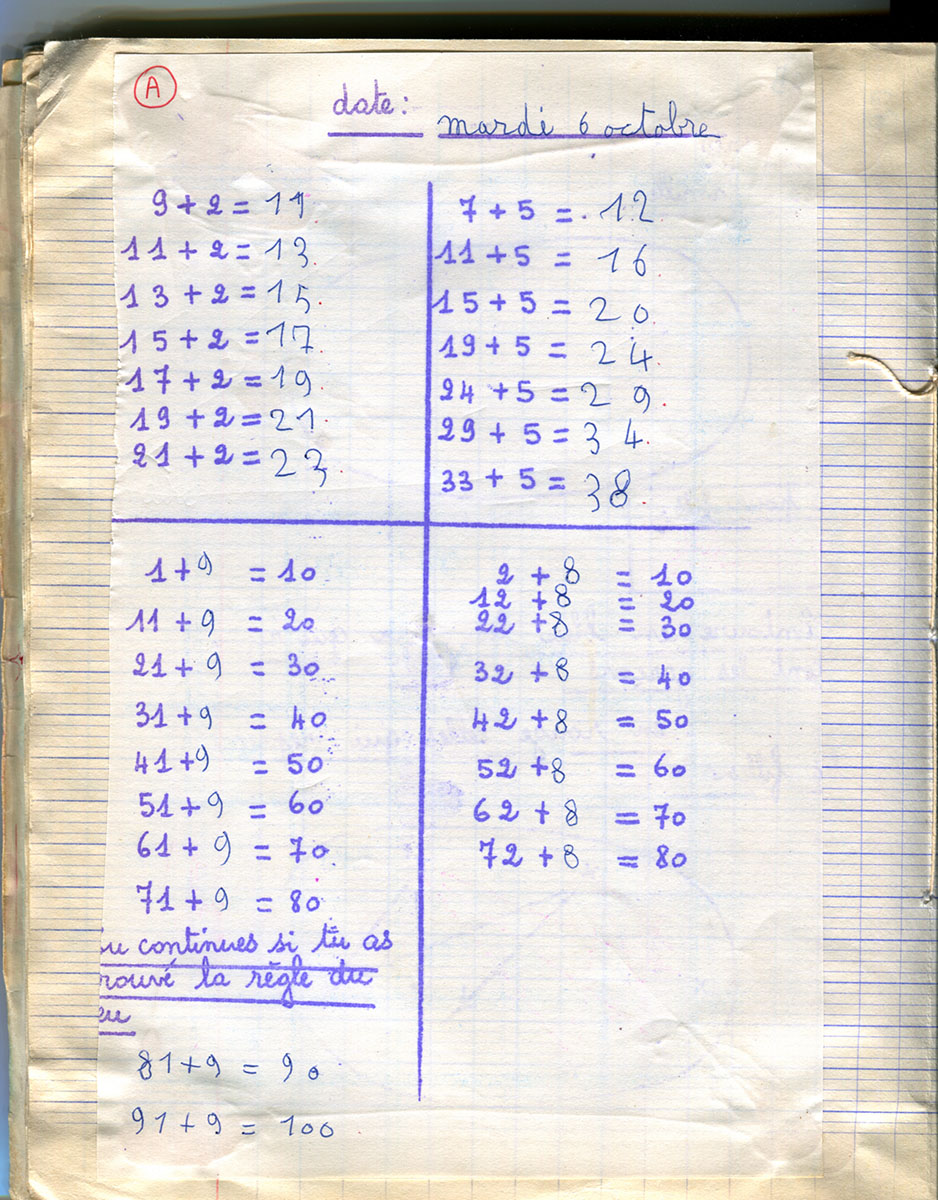 A
date: mardi 6 octobre
9 + 2 = 11
11 + 2 = 13
13 + 2 = 15
15 + 2 = 17
17 + 2 = 19
19 + 2 = 21
21 + 2 = 23
7 + 5 = 12
11 + 5 = 16
15 + 5 = 20
19 + 5 = 24
24 + 5 = 29
29 + 5 = 34
33 + 5 = 38
1 + 9 = 10
11 + 9 = 20
21 + 9 = 30
31 + 9 = 40
41 + 9 = 50
51 + 9 = 60
61 + 9 = 70
71 + 9 = 80
u continues si tu as
rouvé la règle du
eu
81 + 9 = 90
91 + 9 = 100
2 + 8 = 10
12 + 8 = 20
22 + 8 = 30
32 + 8 = 40
42 + 8 = 50
52 + 8 = 60
62 + 8 = 70
72 + 8 = 80